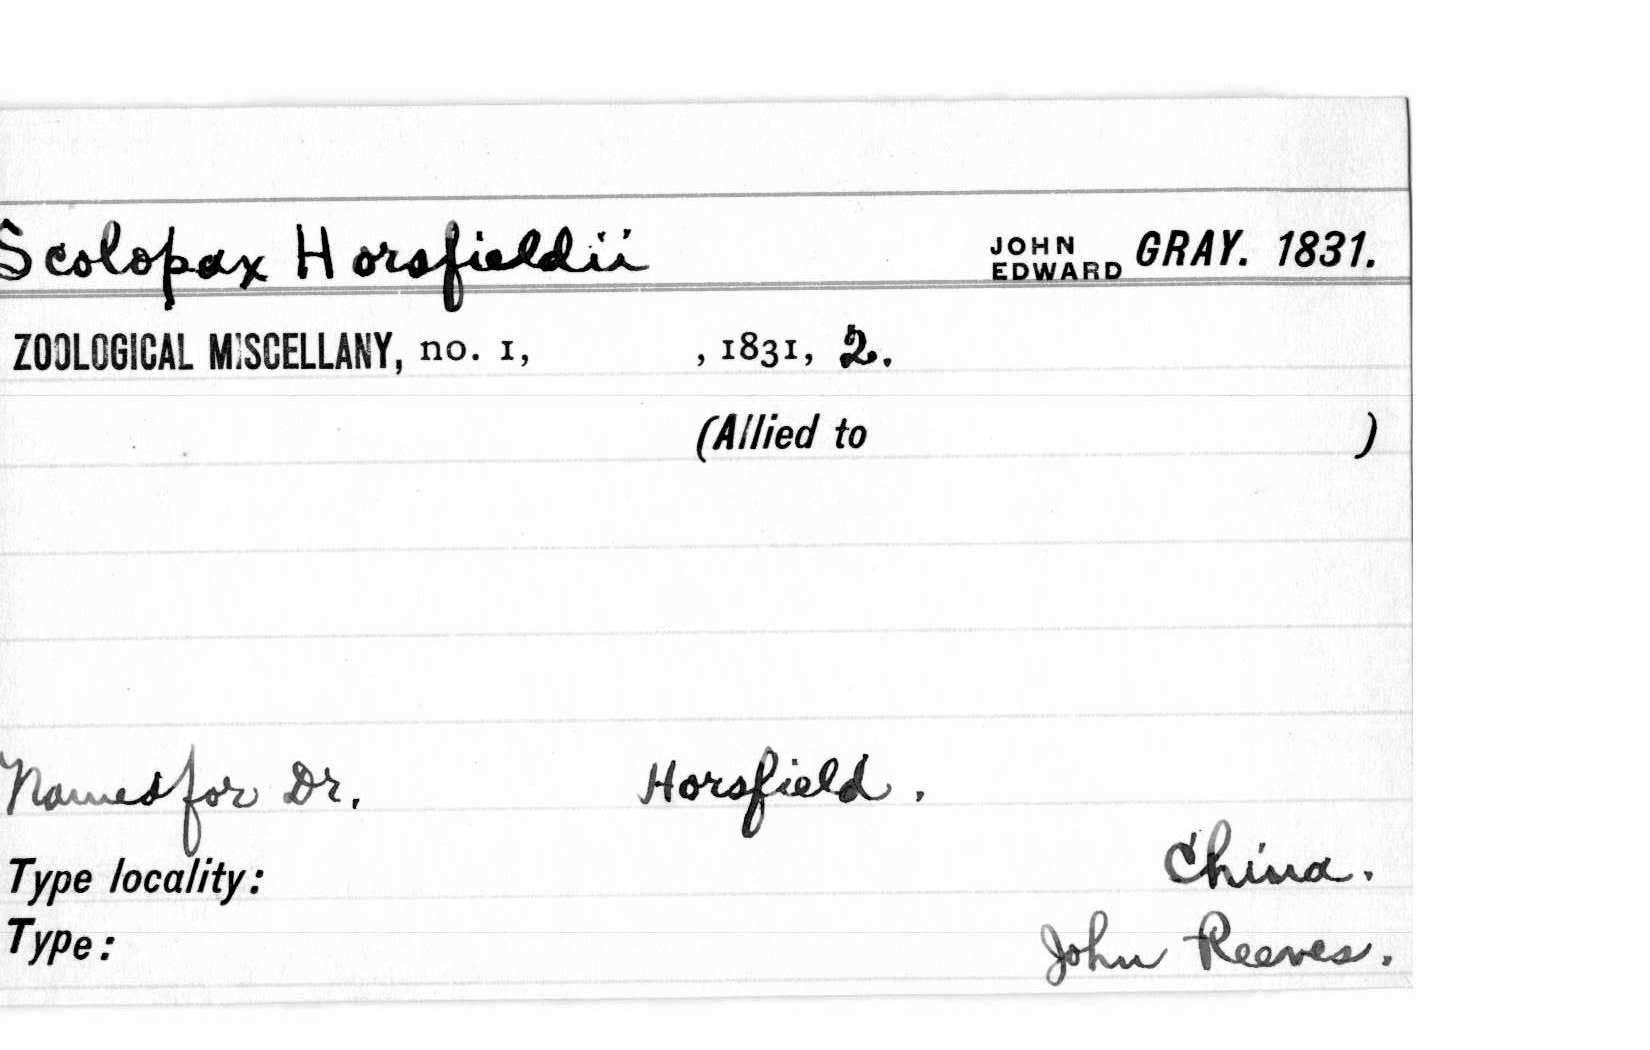 Scolopax Horsfieldii JOHN EDWARD GRAY. 1831.
ZOOLOGICAL MISCELLANY, no. 1, , 1831, 2.
(Allied to )
Named for Dr. Horsfield.
China.
Type locality:
Type: John Reeves.